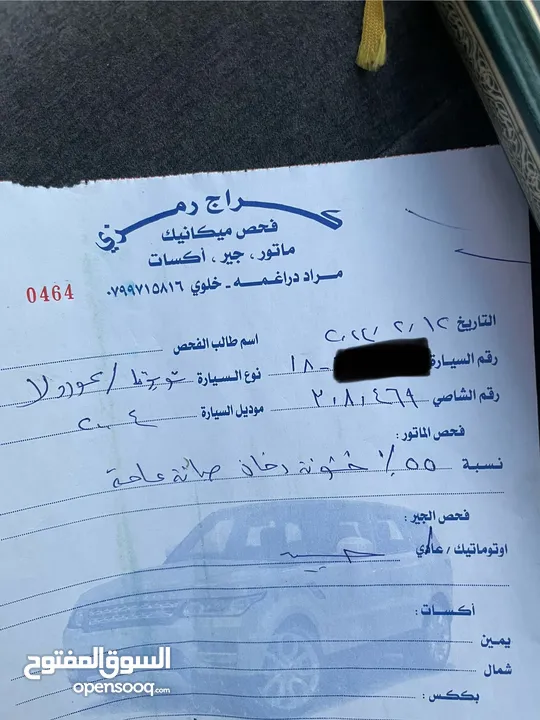 كراج رمزي
فحص ميكانيك
ماتور ، جير ، أكسات
مراد دراغمه - خلوي ٠٧٩٩٧١٥٨١٦
0464
التاريخ ٢٠٢٢/٢/١٢ اسم طالب الفحص
رقم السيارة ١٨- نوع السيارة تويوتا / كورولا
رقم الشاصي ٢٠٨٠٤٦٩ موديل السيارة ٢٠٠٤
فحص الماتور :
نسبة ٥٥٪ خشونة دخان صيانة عامة
فحص الجير :
اوتوماتيك / عادي جيد
أكسات :
يمين
شمال
بككس :
السوق المفتوح
opensooq.com